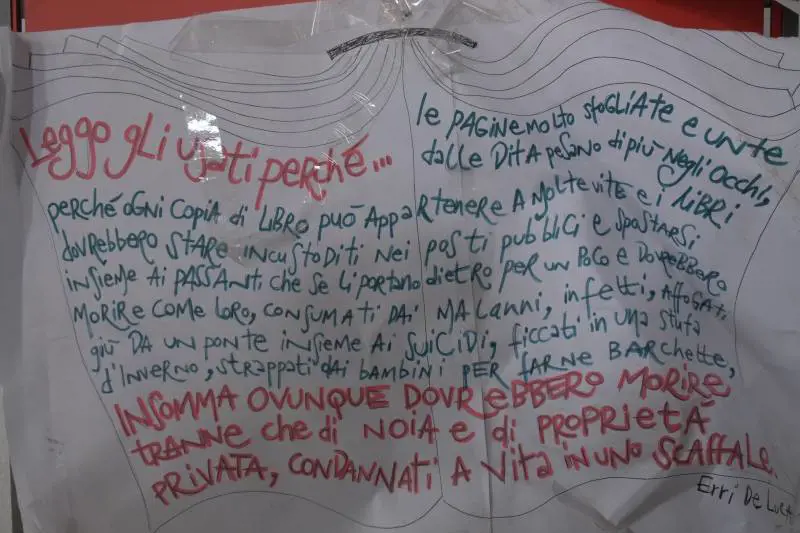 Leggo gli usati perché...
le pagine molto sfogliate e unte
dalle dita pesano di più negli occhi,
perché ogni copia di libro può appartenere a molte vite e i libri
dovrebbero stare incustoditi nei posti pubblici e spostarsi
insieme ai passanti che se li portano dietro per un poco e dovrebbero
morire come loro, consumati dai malanni, infetti, affogati
giù da un ponte insieme ai suicidi, ficcati in una stufa
d'inverno, strappati dai bambini per farne barchette,
insomma ovunque dovrebbero morire
tranne che di noia e di proprietà
privata, condannati a vita in uno scaffale.
Erri De Luca